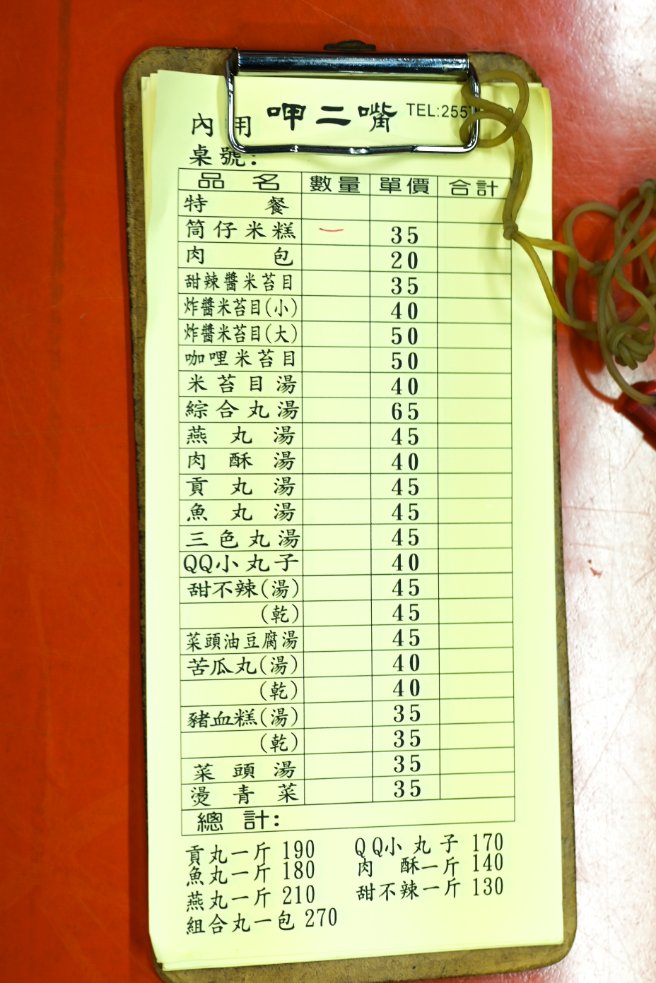 呷二嘴 TEL:255
內用
桌號:
品名 數量 單價 合計
特餐
筒仔米糕 35
肉包 20
甜辣醬米苔目 35
炸醬米苔目(小) 40
炸醬米苔目(大) 50
咖哩米苔目 50
米苔目湯 40
綜合丸湯 65
燕丸湯 45
肉酥湯 40
貢丸湯 45
魚丸湯 45
三色丸湯 45
QQ小丸子 40
甜不辣(湯) 45
(乾) 45
菜頭油豆腐湯 45
苦瓜丸(湯) 40
(乾) 40
豬血糕(湯) 35
(乾) 35
菜頭湯 35
燙青菜 35
總計:
貢丸一斤 190 QQ小丸子 170
魚丸一斤 180 肉酥一斤 140
燕丸一斤 210 甜不辣一斤 130
組合丸一包 270